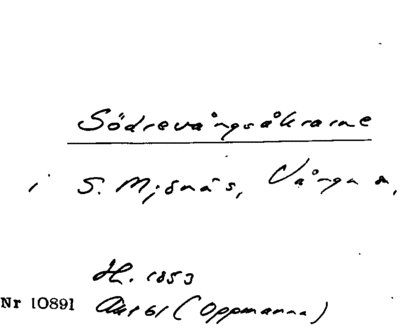 Södrevångsåkrarne
i S. Mjönäs, Vånga s,
H. 1853
Nr 10891 Akt 61 (Oppmanna)